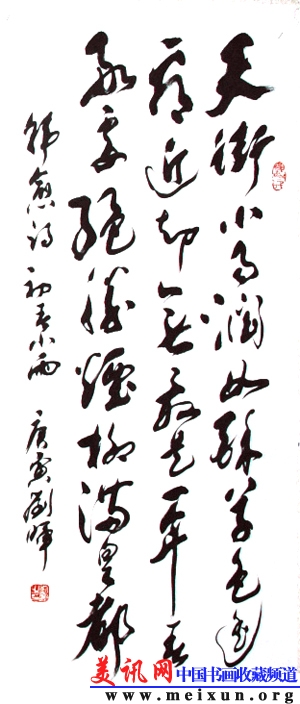 天街小雨潤如酥草色遥
看近却無最是一年春
好處絕勝煙柳滿皇都
韓愈詩 初春小雨 庚寅劉暉
美讯网 中国书画收藏频道
www.meixun.org